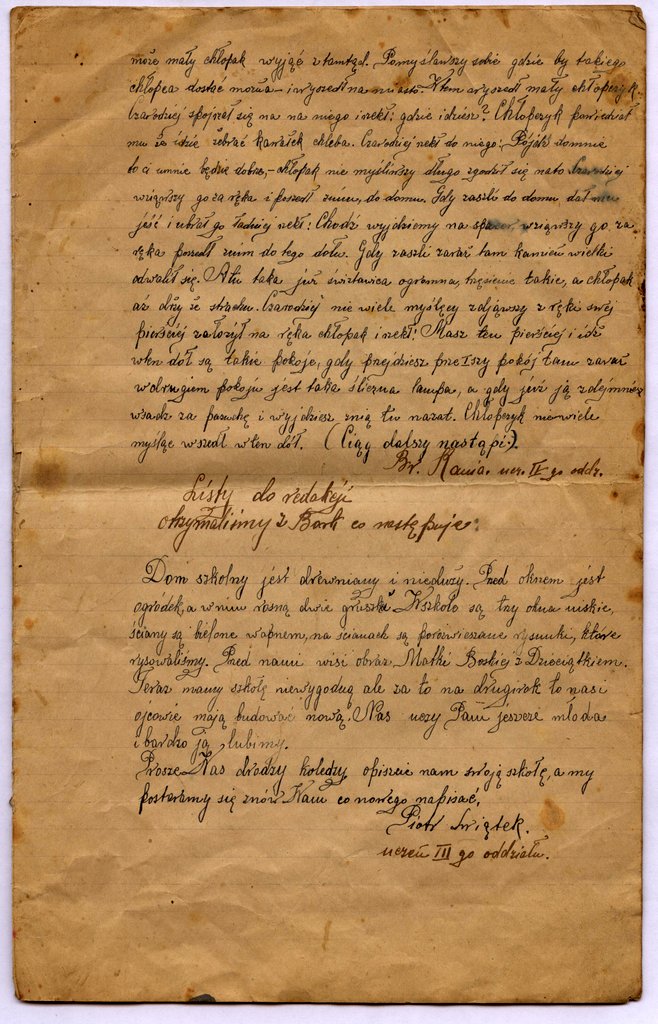 może mały chłopak wyjąć ztamtąd. Pomyślawszy sobie gdzie by takiego
chłopca dostać można – i wyszedł na miasto. Wtem wyszedł mały chłopczyk
Czarodziej spojrzał się na na niego i rzekł: gdzie idziesz? Chłopczyk powiedział
mu że idzie żebrać kawałek chleba. Czarodziej rzekł do niego: Pójdź domnie
bo ci umnie będzie dobrze, – chłopak nie myśliwszy długo zgodził się nato Czarodziej
wziąwszy go za ręka i poszedł znim, do domu. Gdy zaszli do domu dał mu
jeść i ubrał go ładniej rzekł: Chodź wyjdziemy na spacer, wziąwszy go za
ręka poszedł znim do tego dołu. Gdy zaszli zaraz tam kamień wielki
odwalił się. A tu taka już świstawica ogromna, trzęsienie takie, a chłopak
aż drży ze strachu. Czarodziej nie wiele myślęcy zdjąwszy z ręki swej
pierściej założył na ręka chłopak i rzekł: Masz ten pierściej i idź
wten dół są takie pokoje, gdy przejdziesz prze Iszy pokój tam zaraz
w drugiem pokoju jest taka śliczna lampa, a gdy już ją zdejmniesz
wsadź za pazuchę i wyjdziesz znią tu nazat. Chłopczyk niewiele
myśląc wszedł w ten dół. (Ciąg dalszy nastąpi.)
Br. Kania. ucz. IV go oddz.
Listy do redakcji
otrzymaliśmy z Bark co następuje:
Dom szkolny jest drewniany i nieduży. Przed oknem jest
ogródek, a w nim rosną dwie gruszki. W szkole są trzy okna niskie,
ściany są bielone wapnem, na ścianach są porozwieszane rysunki, które
rysowaliśmy. Przed nami wisi obraz Matki Boskiej z Dzieciątkiem.
Teraz mamy szkołę niewygodną ale za to na drugi rok to nasi
ojcowie mają budować nową. Nas uczy Pani jeszcze młoda
i bardzo ją lubimy.
Prosze Was drodzy koledzy, opiszcie nam swoją szkołę, a my
postaramy się znów Wam co nowego napisać.
Piotr Świątek.
uczeń III go oddziału.